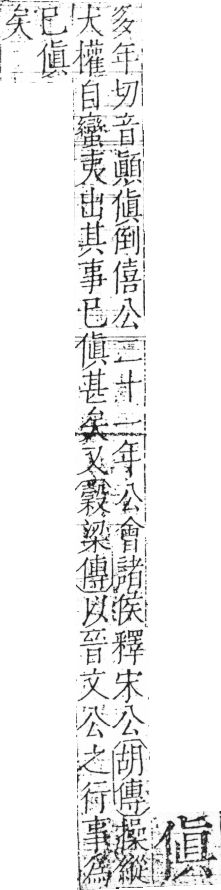 傎
多年切音顚傎倒僖公二十一年公會諸侯釋宋公胡傳操縱
大權自蠻夷出其事已傎甚矣又穀梁傳以晉文公之行事為
已傎
矣